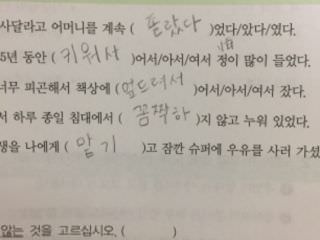 사달라고 어머니를 계속 ( 졸랐다 )었다/았다/였다.
5년 동안 ( 키워서 )어서/아서/여서 정이 많이 들었다.
너무 피곤해서 책상에 ( 엎드려서 )어서/아서/여서 잤다.
서 하루 종일 침대에서 ( 꼼짝하 )지 않고 누워 있었다.
생을 나에게 ( 맡기 )고 잠깐 슈퍼에 우유를 사러 가셨
않는 것을 고르십시오. ( )